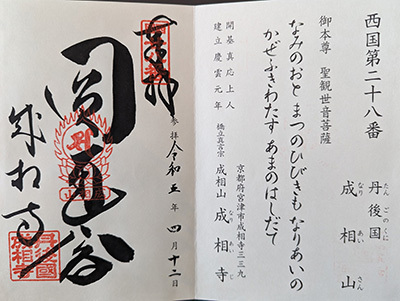 西国第二十八番
丹後国
たんごのくに
成相山
なりあいさん
御本尊 聖観世音菩薩
なみのおと まつのひびきも なりあいの
かぜふきわたす あまのはしだて
開基真応上人
建立慶雲元年
京都府宮津市成相寺三三九
橋立真言宗 成相山 成相寺
なりあいじ
奉拝
参拝 令和五年 四月十二日
圓通
成相寺